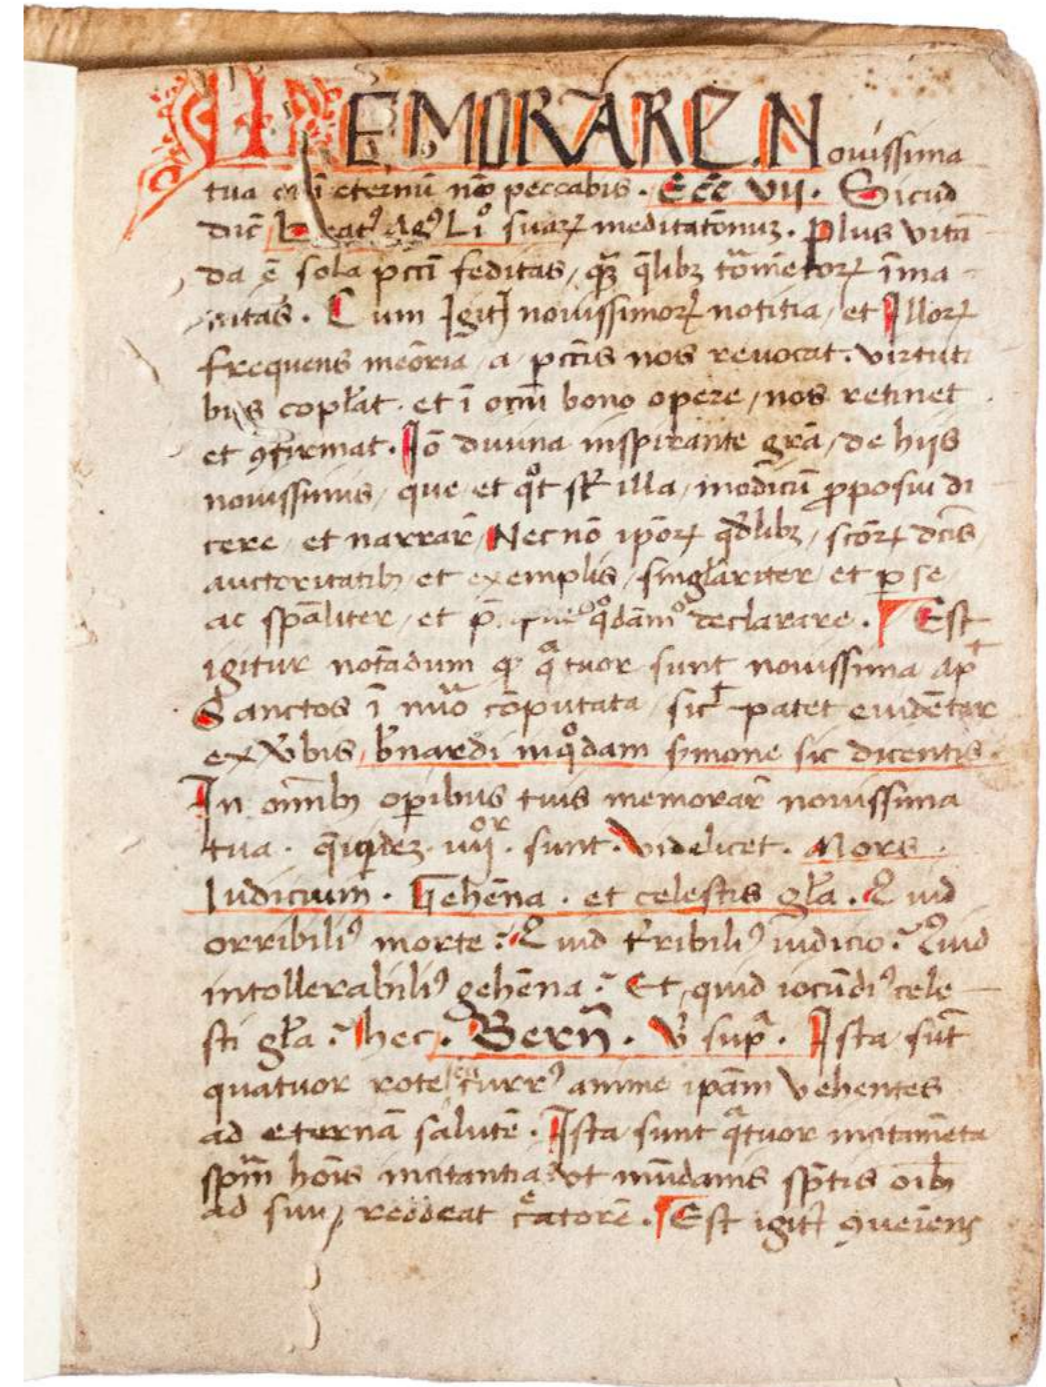 MEMORARE. Nouissima
tua et ī eternū nō peccabis. Ecc̄ VII. Sicud
dic̄ Beatꝰ Agꝰ Li suaꝝ meditatōnuꝫ. Plus vitā
da ē sola pcc̄i feditas, qꝫ q̄libꝫ tōmētoꝝ īma
nitas. Cum Igit᷑ nouissimoꝝ notitia, et Illoꝝ
frequens meōria, a pcc̄is nos reuocat. virtuti
bus copl̄at. et ī om̄i bono opere, nos retinet
et ꝯfirmat. Iō diuina inspirante gr̄a, de hijs
nouissimis, que et qͦt sꝉ illa, modicū ꝓposui di
cere, et narrar̄ Necnō ipōꝝ qd̄libꝫ, scōꝝ dc̄is,
auctoritatibꝫ et exemplis, singl̄ariter et ꝑ se,
ac spāliter, et qͦdām declarare. ¶ Est
igitur notādum ꝙ qᵃtuor sunt nouissima ap᷑
Sanctos ī nūo cōputata, sic᷑ patet euidēter
ex v̄bis, b̄nardi in qͦdam s̄mone sic dicentis.
In om̄ibꝫ oꝑibus tuis memorar̄ nouissima
tua. q̄quidez. iiijᵒʳ. sunt. videlicet. Mors.
Iudicium. Gehēna. et celestis gl̄a. Quid
orribiliꝰ morte? Quid t̄ribiliꝰ iudicio? Quid
intollerabiliꝰ gehēna? Et, quid iocūdiꝰ cele
sti gl̄a? hec. Bern̄. v̄ supᵃ. Ista sūt
quatuor rote currꝰ anime ipām vehentes
ad eternā salutē. Ista sunt qᵃtuor incitamēta
spm̄ hoīs incitantia, vt mūdanis sp̄tis oīb
ad suu redeat cᵉatorē. ¶ Est igit᷑ ꝯueīens